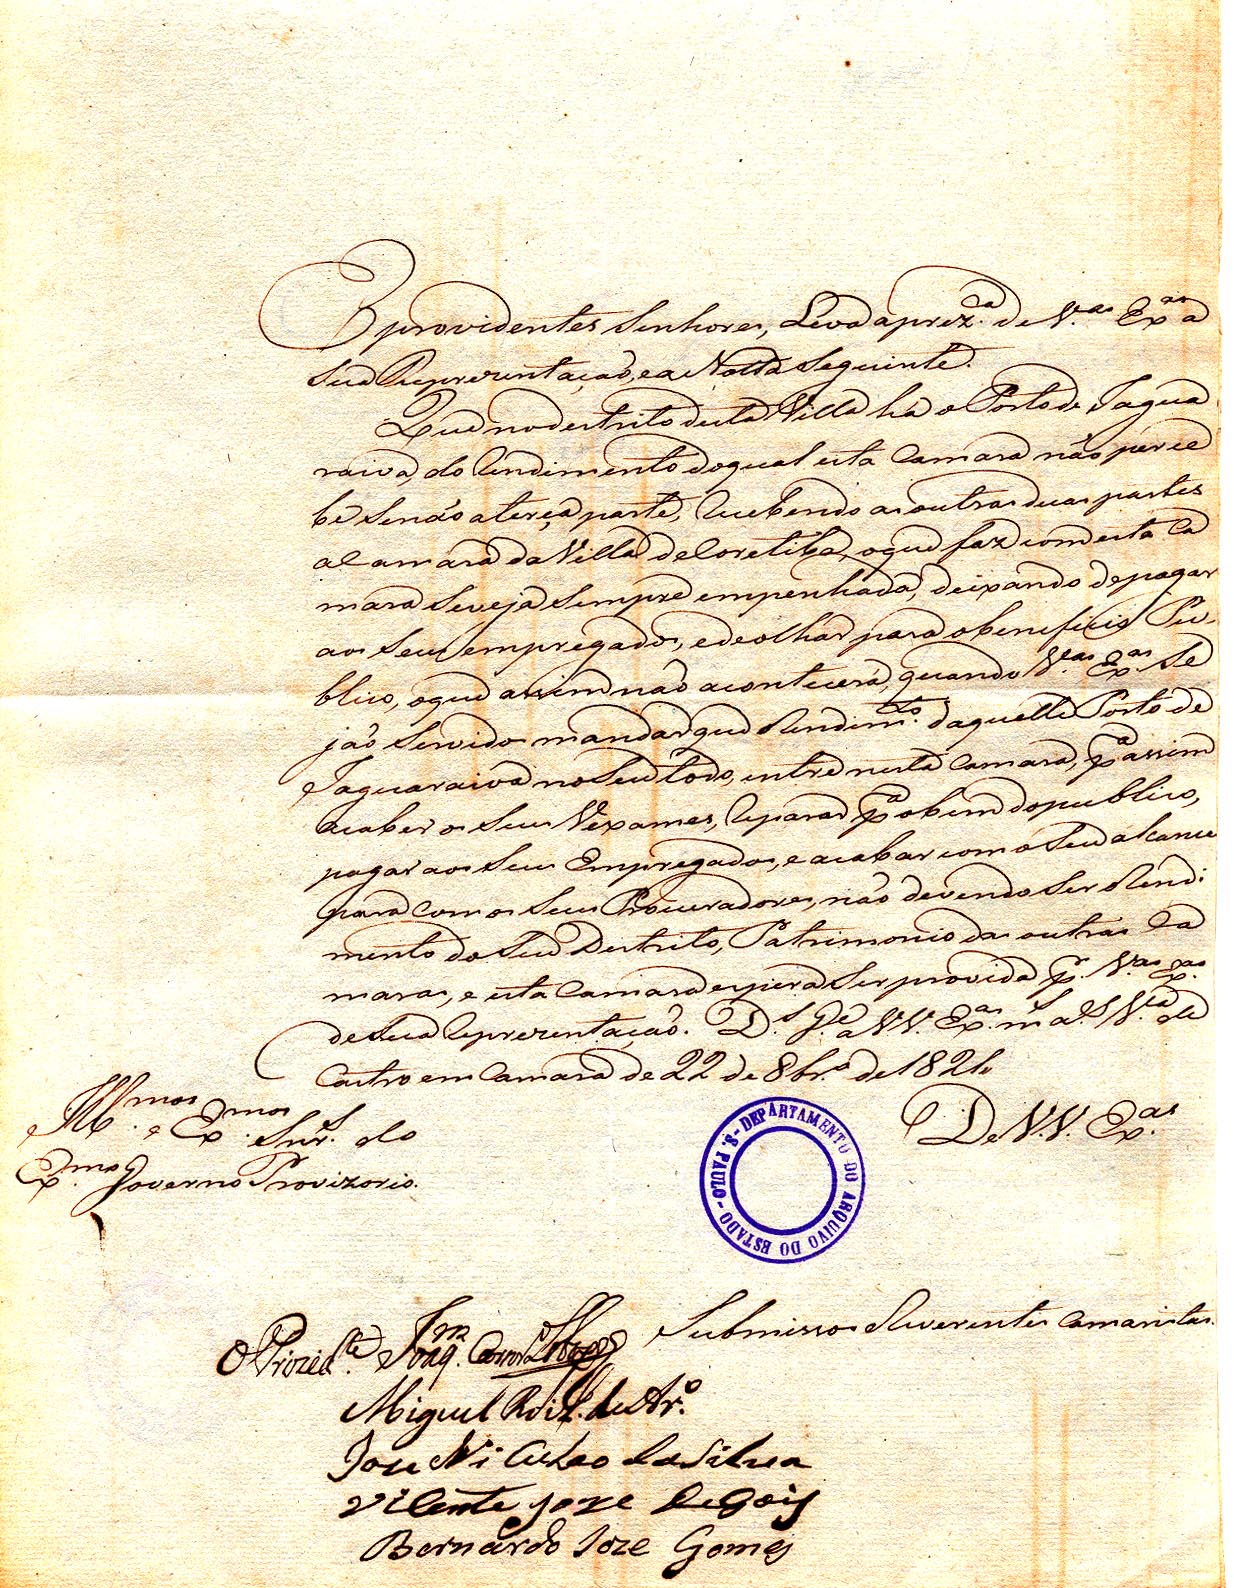 providentes Senhores, Leva aprez.ᵃ de V.ᵃˢ Ex.ᵃˢ a
sua Reprezentação, e a Notta Seguinte.
Que no destrito desta Villa há o Porto de Jagua
raiva, do Rendimento do qual esta Camara não perce
be senão a terça parte, Recebendo as outras duas partes
a Camara da Villa de Coretiba, o que faz com esta Ca
mara se veja sempre empenhada, deixando de pagar
aos seus empregados, e de olhar para o beneficio Pu-
blico, o que assim não acontecerá, quando V.ᵃˢ Ex.ᵃˢ se
jão servidos mandar que Rendim.ᵗᵒ daquelle Porto de
Jaguaraiva no seu todo, entre nesta Camara, p.ᵃ assim
os seus Vexames, Reparar p.ᵃ o bem do publico,
pagar aos seus Empregados, e acabar com o seu alcance
para com os seus Procuradores, não devendo ser Rendi
mento do seu Destrito, Patrimonio das outras Ca
maras, e esta Camara espera ser provida p.ʳ V.ᵃˢ Ex.ᵃˢ
de sua Reprezentação. D.ˢ G.ᵉ a VV. Ex.ᵃˢ m.ˢ a.ˢ V.ᵃ de
Castro em Camara de 22 de 8br.º de 1821
De V.V. Ex.ᵃˢ
Ill.ᵐᵒˢ e Ex.ᵐᵒˢ Snr.ˢ do
Ex.ᵐᵒ Governo Provizorio.
DEPARTAMENTO DO ARQUIVO DO ESTADO - S. PAULO -
Submissos Reverentes Camaristas
O Prezid.ᵗᵉ Joaq.ᵐ
Miguel Roiz. de Ar.º
Joze Nicolao da Silva
Vicente Joze de Gois
Bernardo Joze Gomes